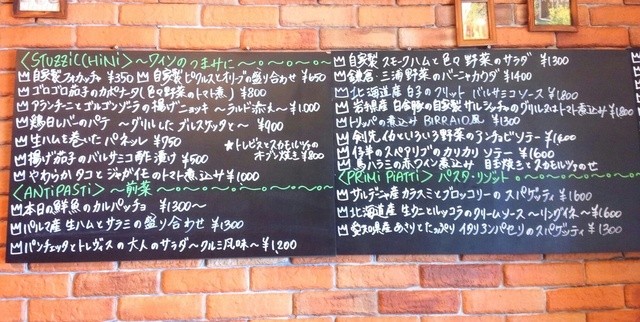 <STUZZICCHINI> ～ワインのつまみに～
自家製フォカッチャ ¥350 自家製ピクルスとオリーブの盛り合わせ ¥650
ゴロゴロ茄子のカポナータ(色々野菜のトマト煮) ¥800
アランチーニとゴルゴンゾーラの揚げニョッキ ～ラルド添え～ ¥1,000
鶏白レバーのパテ ～グリルしたブルスケッタと～ ¥900
生ハムを巻いたパネッレ ¥750
★トレビスとスカモルツァのオーブン焼き ¥800
揚げ茄子のバルサミコ酢漬け ¥500
やわらかタコとジャガイモのトマト煮込み ¥1000
<ANTiPASTi> ～前菜
本日の鮮魚のカルパッチョ ¥1300～
パルマ産生ハムとサラミの盛り合わせ ¥1300
パンチェッタとトレヴィスの大人のサラダ～クルミ風味～ ¥1,200
自家製スモークハムと色々野菜のサラダ ¥1300
鎌倉・三浦野菜のバーニャカウダ ¥1400
北海道産白子のフリット バルサミコソース ¥1,800
岩根産 の自家製サルシッチャのグリル トマト煮込み ¥1,800
トリッパの煮込み BIRRAIO風 ¥1300
剣先イカといろいろ野菜のアンチョビソテー ¥1600
仔羊のスペアリブのカリカリソテー ¥1600
馬ハラミの赤ワイン煮込み 目玉焼きとスカモルツァのせ
<PRiMi PiATTi> パスタ・リゾット
サルデーニャ産カラスミとブロッコリーのスパゲッティ ¥1600
北海道産生ウニとルッコラのクリームソース ～リングイネ～ ¥1600
愛知県産あさりとたっぷりイタリアンパセリのスパゲッティ ¥1300